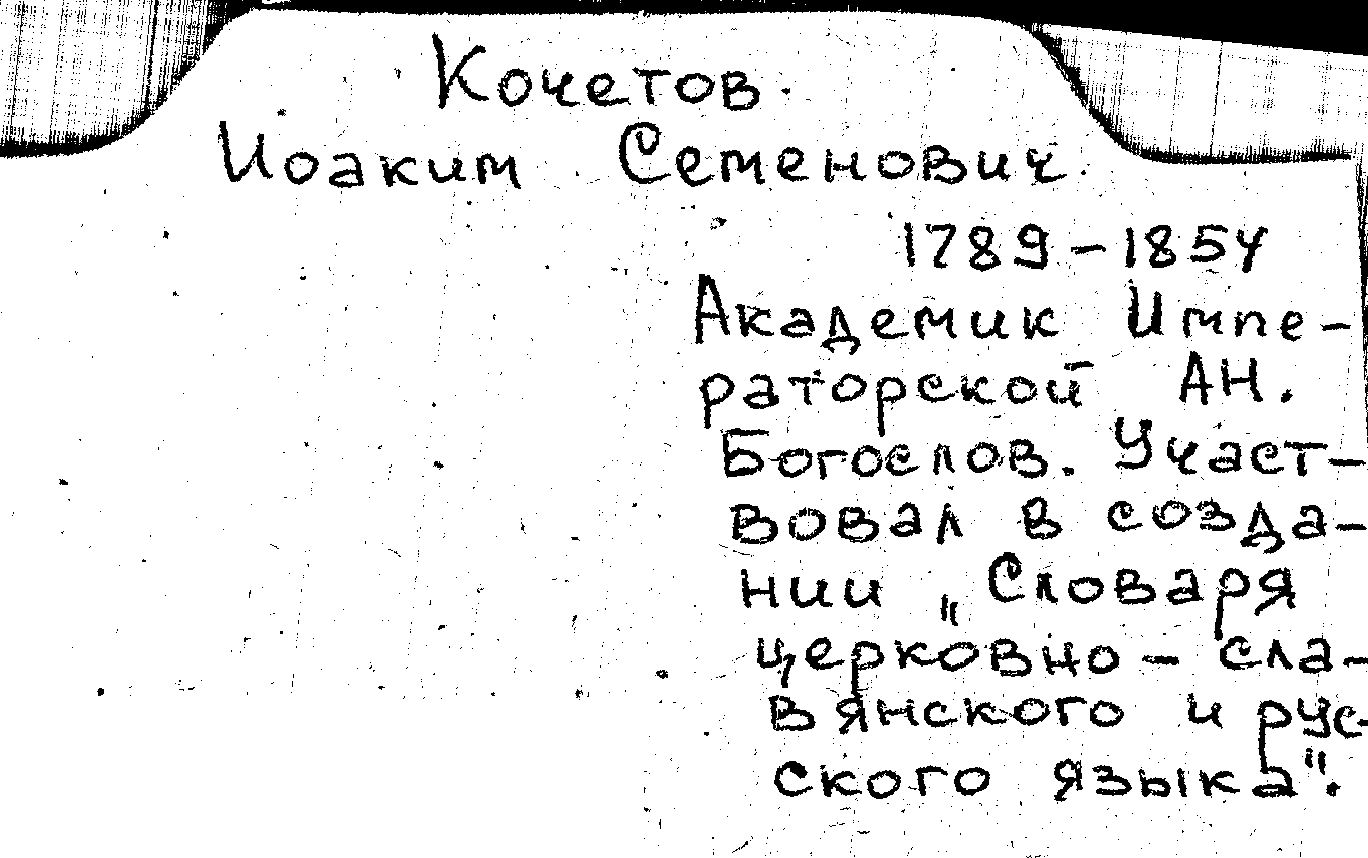 Кочетов.
Иоаким Семенович.
1789-1854
Академик Импе-
раторской АН.
Богослов. Участ-
вовал в созда-
нии „Словаря
церковно-сла-
вянского и рус-
ского языка".